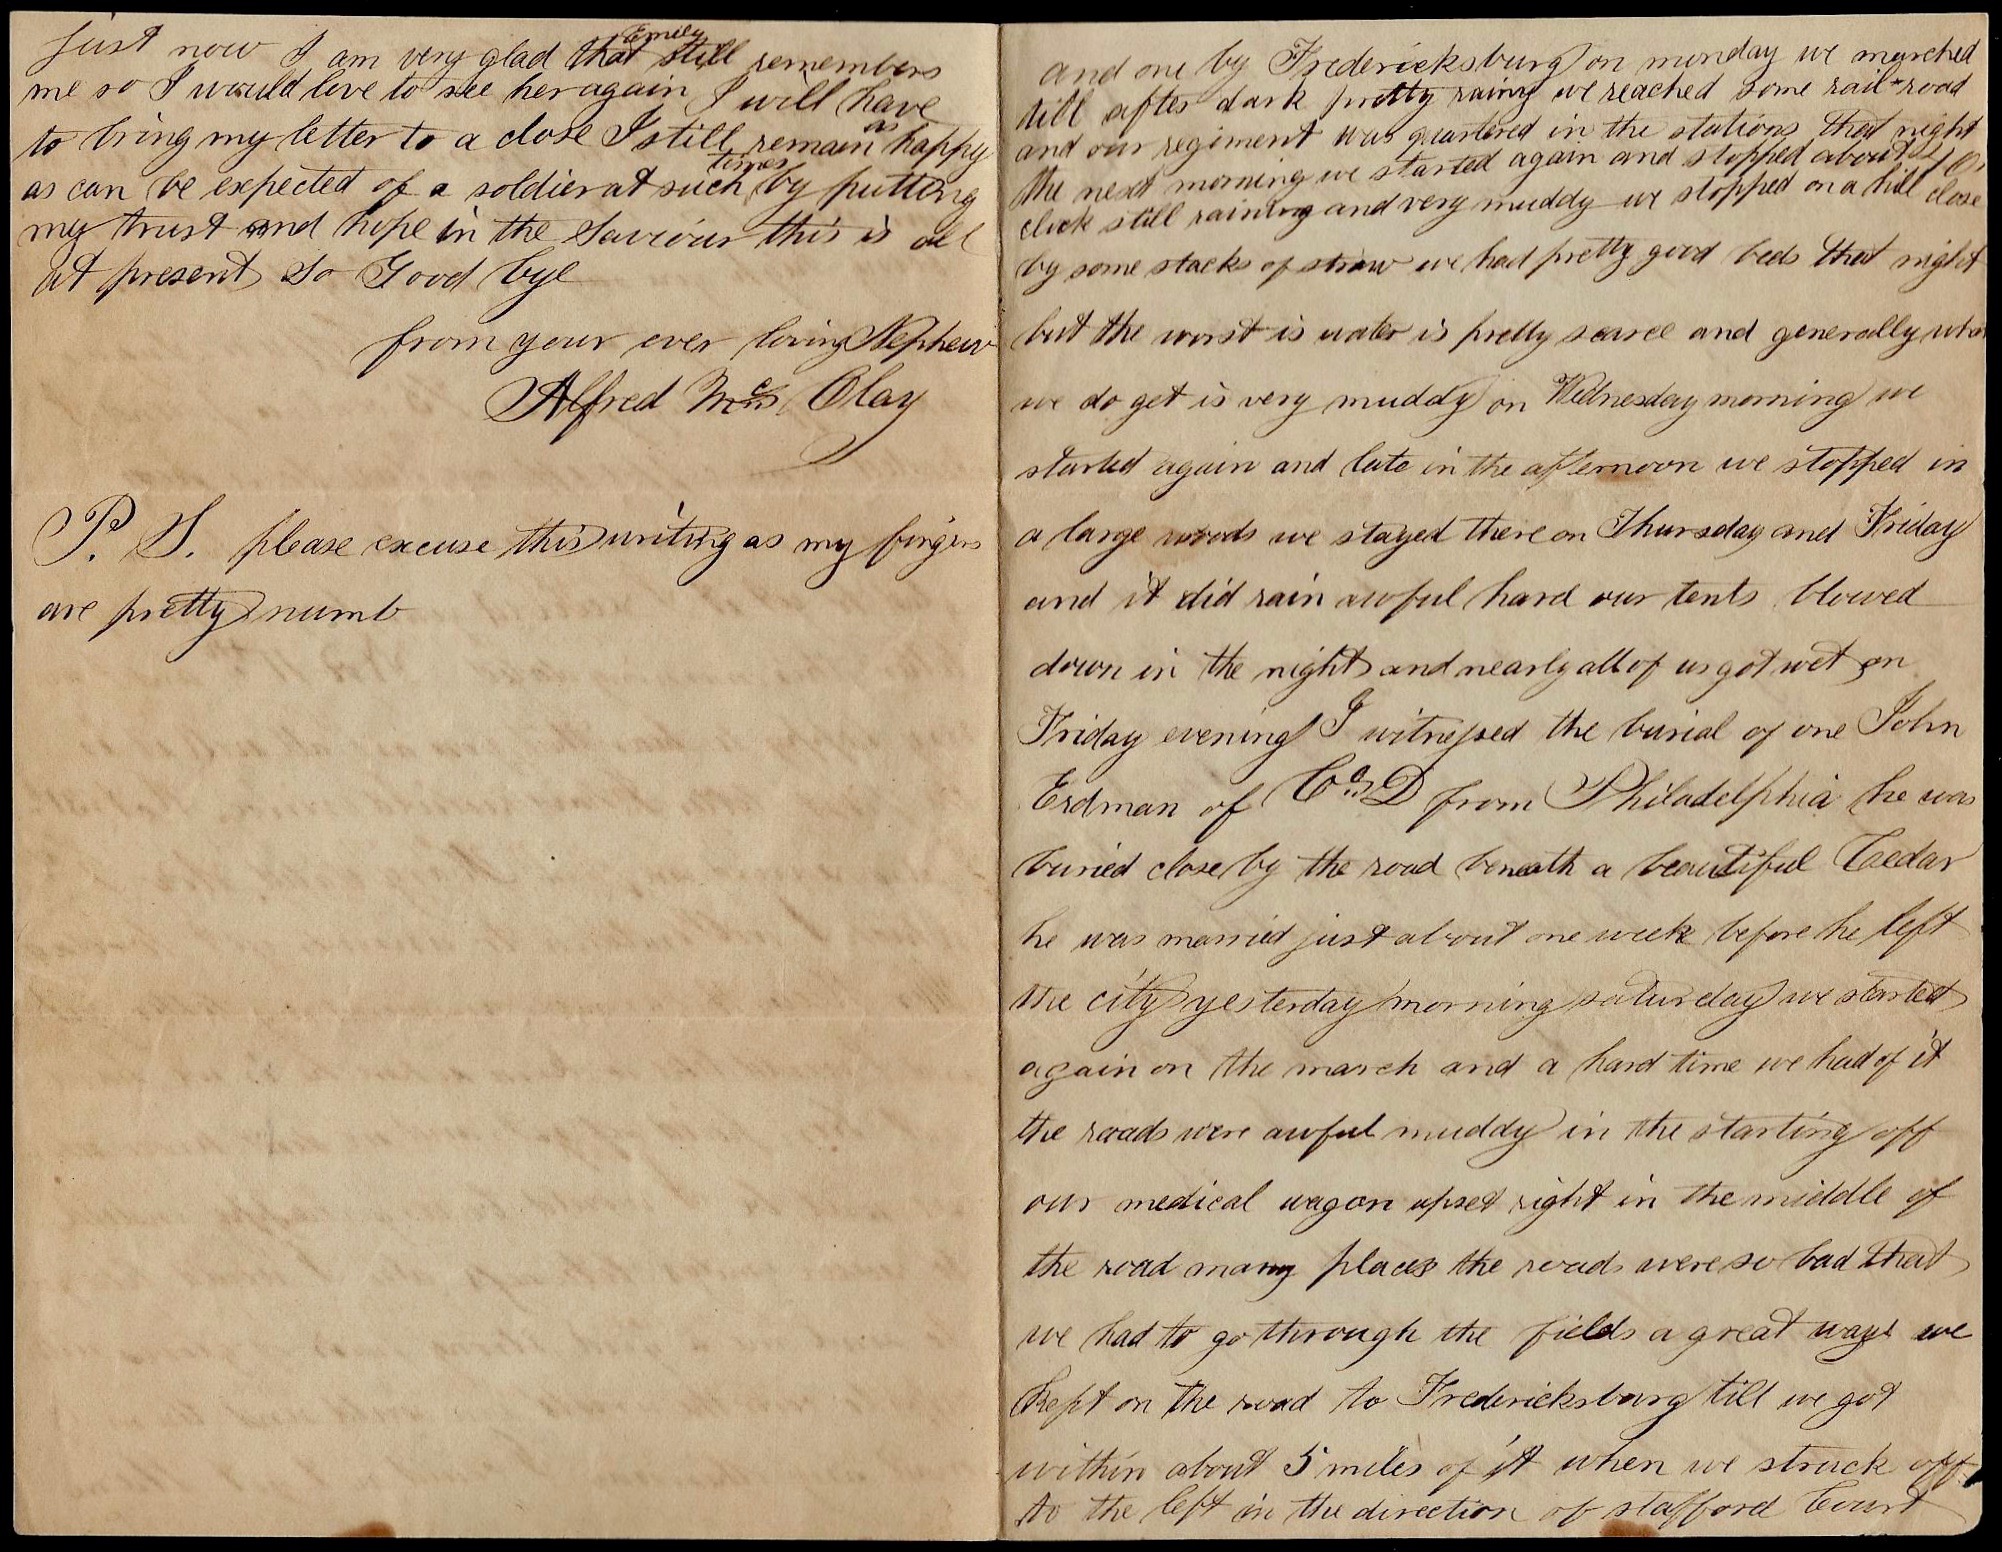 just now I am very glad that Emily still remembers
me so I would love to see her again I will have
to bring my letter to a close I still remain as happy
as can be expected of a soldier at such times by putting
my trust and hope in the Saviour this is all
at present So Good bye
from your ever loving Nephew
Alfred Mc Clay
P. S. please excuse this writing as my fingers
are pretty numb
and one by Fredericksburg on monday we marched
till after dark pretty rainy we reached some rail-road
and our regiment was quartered in the stations that night
the next morning we started again and stopped about 10
clock still raining and very muddy we stopped on a hill close
by some stacks of straw we had pretty good beds that night
but the worst is water is pretty scarce and generally what
we do get is very muddy on Wednesday morning we
started again and late in the afternoon we stopped in
a large woods we stayed there on Thursday and Friday
and it did rain awful hard our tents blowed
down in the night and nearly all of us got wet on
Friday evening I witnessed the burial of one John
Erdman of Co. D from Philadelphia he was
buried close by the road beneath a beautiful Cedar
he was married just about one week before he left
the city yesterday morning saturday we started
again on the march and a hard time we had of it
the roads were awful muddy in the starting off
our medical wagon upset right in the middle of
the road many places the roads were so bad that
we had to go through the fields a great ways we
kept on the road to Fredericksburg till we got
within about 5 miles of it when we struck off
to the left in the direction of stafford Court